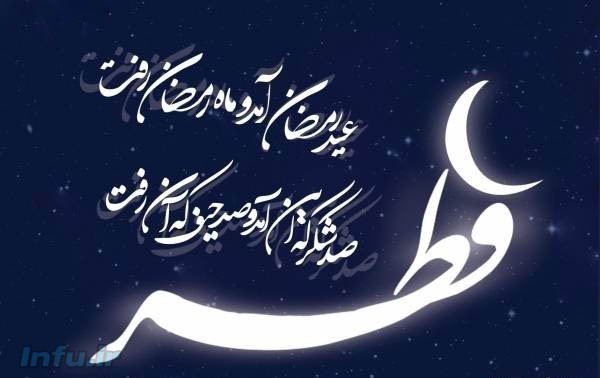 عید رمضان آمد و ماه رمضان رفت
صد شکر که این آمد و صد حیف که آن رفت
فطر
Infu.ir